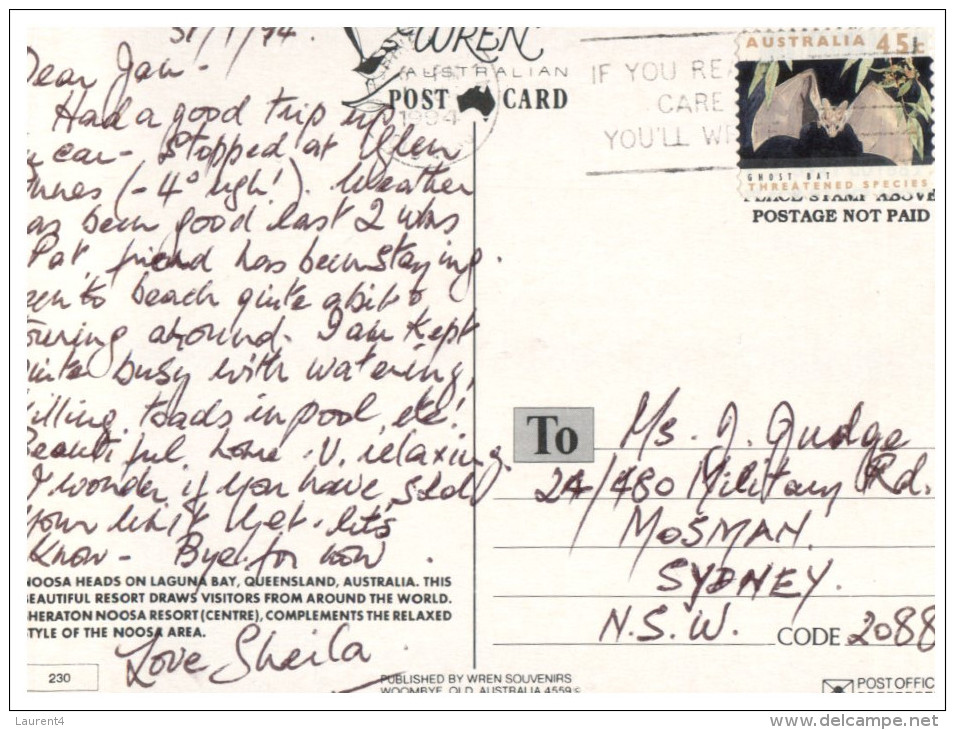 31/1/94.
Dear Jan -
Had a good trip up
car - Stopped at Glen
Innes (-4° ugh!). Weather
as been good last 2 wks
Pat, friend has been staying.
een to beach quite a bit &
touring around. I am kept
uite busy with watering,
killing toads in pool, etc!
Beautiful home . V. relaxing.
I wonder if you have sold
your unit yet. let's
know - Bye for now
NOOSA HEADS ON LAGUNA BAY, QUEENSLAND, AUSTRALIA. THIS
BEAUTIFUL RESORT DRAWS VISITORS FROM AROUND THE WORLD.
SHERATON NOOSA RESORT (CENTRE), COMPLEMENTS THE RELAXED
STYLE OF THE NOOSA AREA.
Love Sheila
230
WREN
AUSTRALIAN
POST CARD
1994
IF YOU REA
CARE
YOU'LL WR
AUSTRALIA 45c
GHOST BAT
THREATENED SPECIES
PLACE STAMP ABOVE
POSTAGE NOT PAID
To Ms. J. Judge
24/480 Military Rd.
MOSMAN.
SYDNEY.
N.S.W. CODE 2088
PUBLISHED BY WREN SOUVENIRS
WOOMBYE, QLD, AUSTRALIA 4559
POST OFFIC
Laurent4
delcampe.net